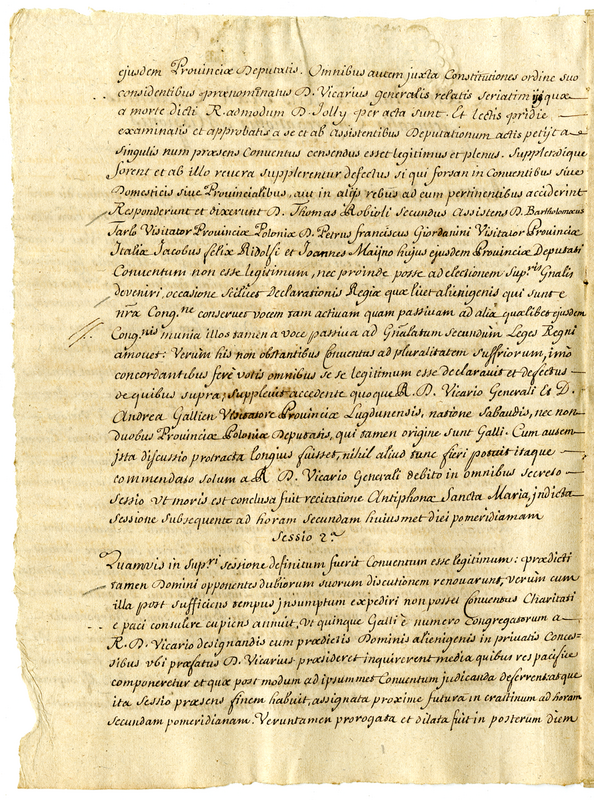 ejusdem Provinciæ Deputatis. Omnibus autem juxta Constitutiones ordine suo
considentibus prænominatus D. Vicarius generalis relatis seriatim ijs quæ
a morte dicti R. admodum D. Jolly per acta sunt. Et lectis pridie
examinatis et approbatis a se et ab Assistentibus Deputationum actis petijt a
singulis num præsens Conventus censendus esset legitimus et plenus. Supplendique
forent et ab illo revera supplerentur defectus si qui forsan in Conventibus sive
Domesticis sive Provincialibus, aut in alijs rebus ad eum pertinentibus acciderint
Responderunt et dixerunt D. Thomas Robioli secundus Assistens D. Bartholomæus
Tarlo Visitator Provinciæ Poloniæ D. Petrus franciscus Giordanini Visitator Provinciæ
Italiæ Jacobus felix Ridolfi et Joannes Maijno hujus ejusdem Provinciæ Deputati
Conventum non esse legitimum, nec proinde posse ad electionem Sup.ris Gnalis
deveniri, occasione scilicet Declarationis Regiæ quæ licet alienigenis qui sunt e
nrâ Cong.ne conservet vocem tam activam quam passivam ad alia quælibet ejusdem
Cong.nis munia illos tamen a voce passiva ad Gñalatum secundum Leges Regni
amovet: Verùm his non obstantibus Conventus ad pluralitatem suffriorum, imò
concordantibus ferè votis omnibus se se legitimum esse declaravit et defectus
de quibus supra, supplevit accedente quoque R. D. Vicario Generali Et D.
Andrea Gallien Visitatore Provinciæ Lugdunensis, natione Sabaudis, nec non
duobus Provinciæ Poloniæ Deputatis, qui tamen origine sunt Galli. Cum autem
ista discussio protracta longius fuisset, nihil aliud tunc fieri potuit itaque
commendato solum a R. D. Vicario Generali debito in omnibus secreto
sessio ut moris est conclusa fuit recitatione Antiphonæ Sancta Maria, indicta
sessione subsequente ad horam secundam huiusmet diei pomeridianam
Sessio 2.a
Quamvis in Sup.ri sessione definitum fuerit Conventum esse legitimum: prædicti
tamen Domini opponentes dubiorum suorum discussionem renovarunt, verùm cum
illa post sufficiens tempus insumptum expediri non posset Conventus Charitati
e paci consulere cupiens annuit, Vt quinque Galli è numero Congregatorum a
R. D. Vicario designandis cum prædictis Dominis alienigenis in privatis Conces=
sibus vbi præfatus D. Vicarius præsideret inquirerent media quibus res pacificè
componeretur et quæ post modum ad ipsummet Conventum judicanda deferrent atque
ita sessio præsens finem habuit, assignata proxime futura in crastinum ad horam
secundam pomeridianam. Veruntamen prorogata et dilata fuit in posterum diem